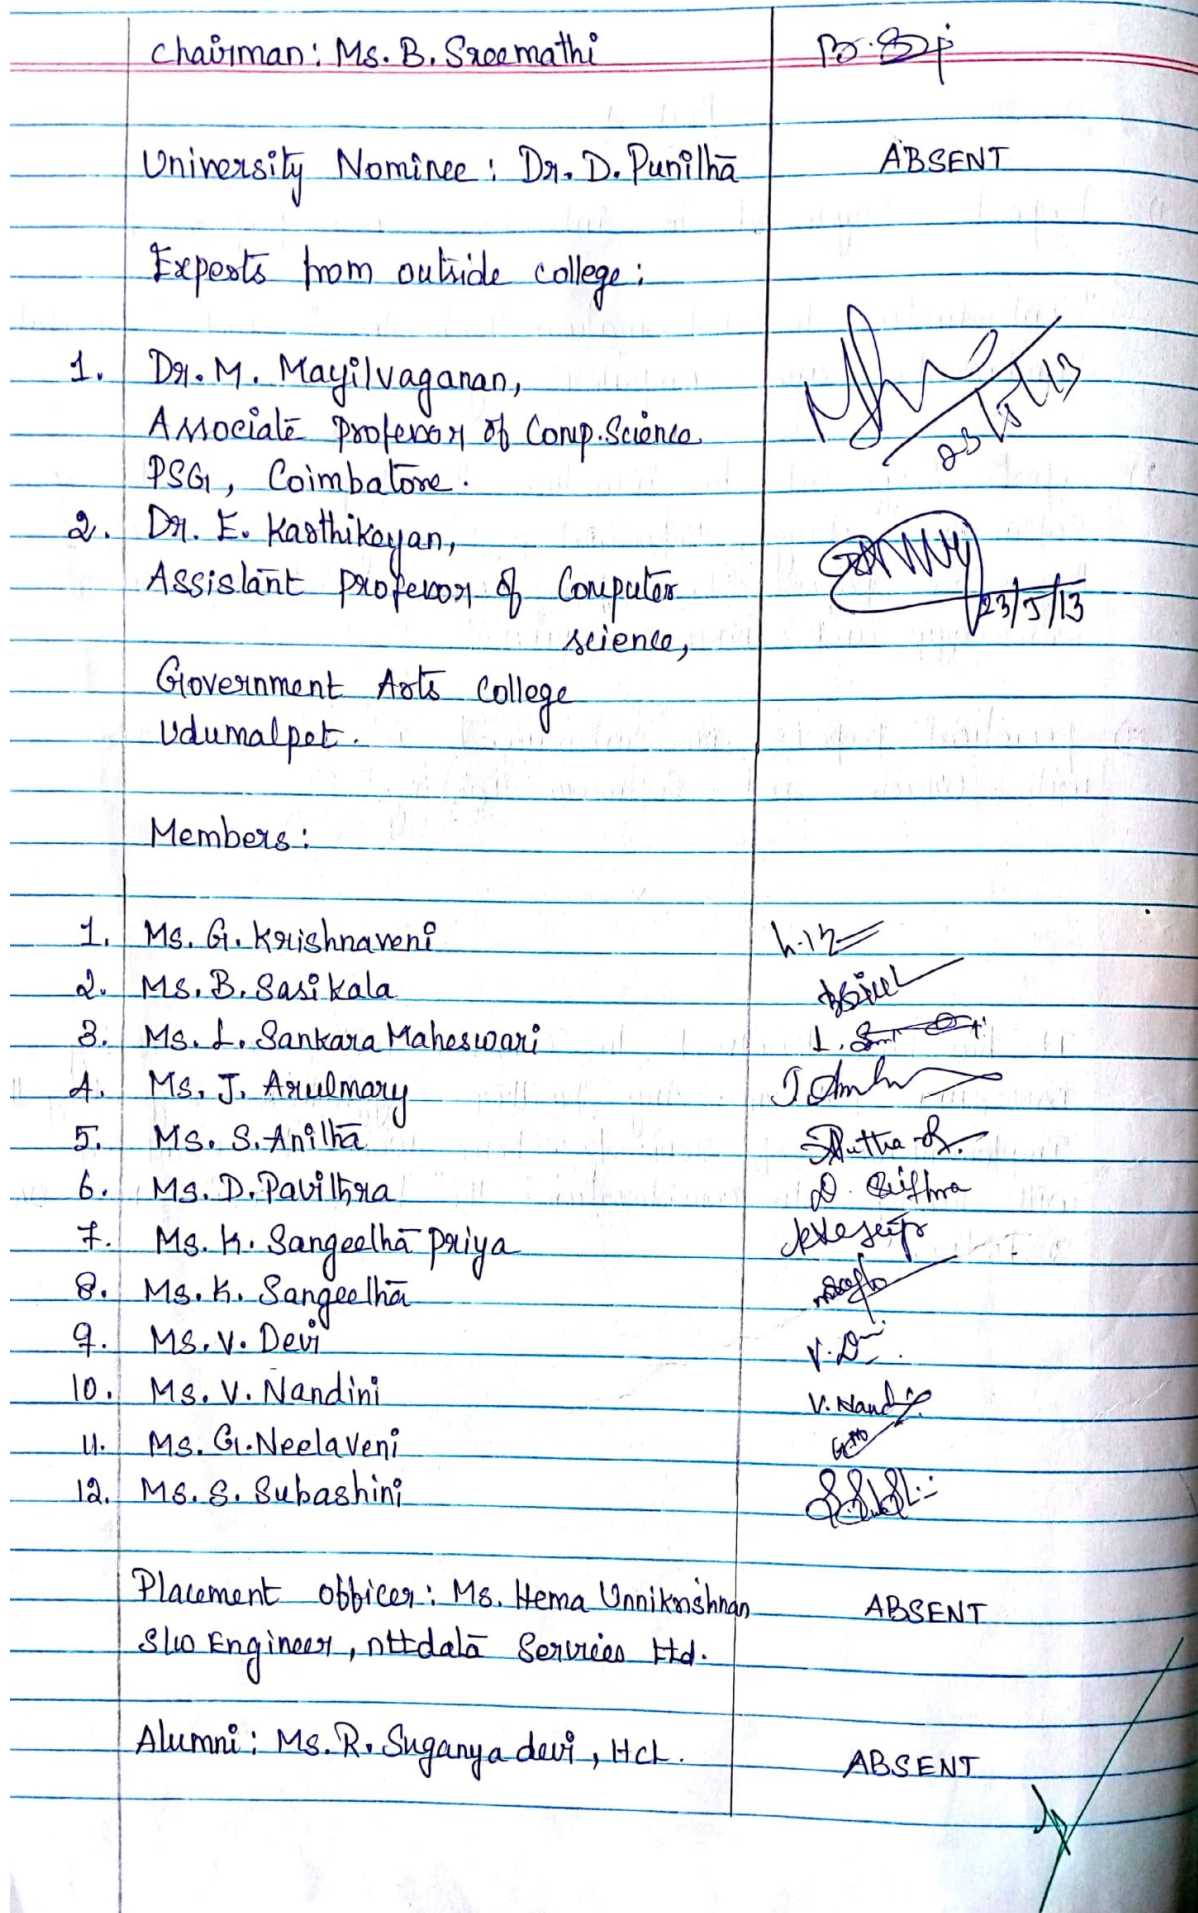 Chairman: Ms. B. Sreemathi
University Nominee: Dr. D. Punitha ABSENT
Experts from outside college:
1. Dr. M. Mayilvaganan,
Associate Professor of Comp. Science
PSG, Coimbatore.
2. Dr. E. Karthikeyan,
Assistant Professor of Computer
science, 23/5/13
Government Arts College
Udumalpet.
Members:
1. Ms. G. Krishnaveni
2. Ms. B. Sasikala
3. Ms. L. Sankara Maheswari
4. Ms. J. Arulmary
5. Ms. S. Anitha
6. Ms. D. Pavithra
7. Ms. K. Sangeetha priya
8. Ms. K. Sangeetha
9. Ms. V. Devi
10. Ms. V. Nandini V. Nand
11. Ms. G. Neelaveni
12. Ms. S. Subashini
Placement officer: Ms. Hema Unnikrishnan ABSENT
S/w Engineer, nttdata Services Ltd.
Alumni: Ms. R. Suganya devi, HCL. ABSENT